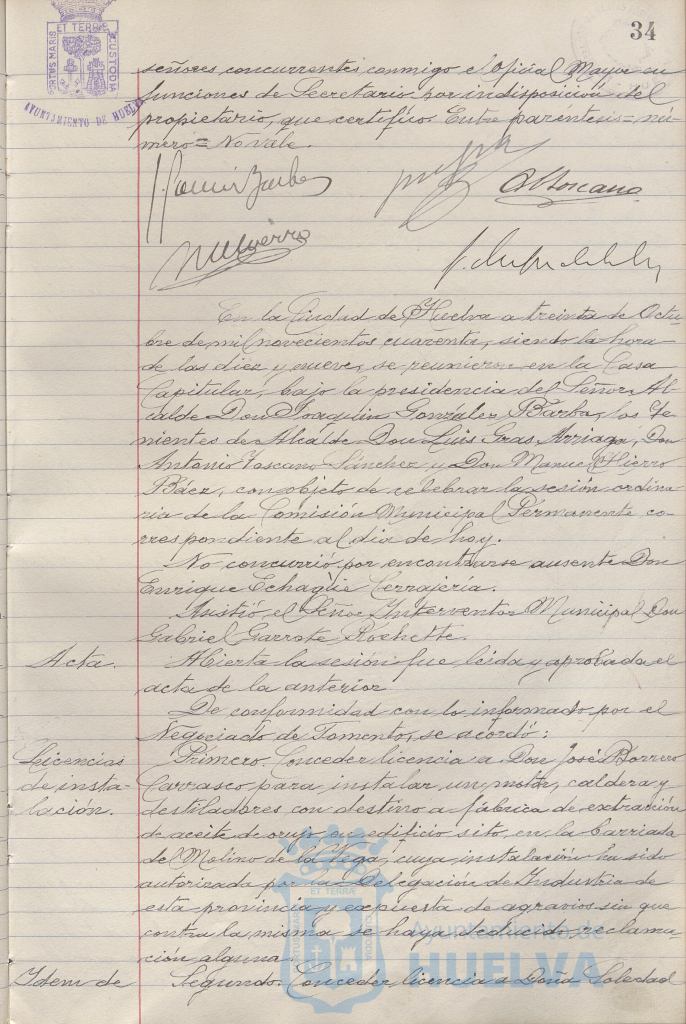 34
PORTUS MARIS ET TERRAE CUSTODIA
AYUNTAMIENTO DE HUELVA
señores concurrentes conmigo el Oficial Mayor en
funciones de Secretario por indisposición del
propietario, que certifico. Entre paréntesis = nú-
mero = No vale.
En la Ciudad de Huelva a treinta de Octu-
bre de mil novecientos cuarenta, siendo la hora
de las diez y nueve, se reunieron en la Casa
Capitular, bajo la presidencia del Señor Al-
calde Don Joaquín González Barba, los Te-
nientes de Alcalde Don Luis Gras Arriaga, Don
Antonio Toscano Sánchez y Don Manuel Hierro
Báez, con objeto de celebrar la sesión ordina-
ria de la Comisión Municipal Permanente co-
rrespondiente al día de hoy.
No concurrió por encontrarse ausente Don
Enrique Echagüe Cerrajería.
Asistió el Señor Interventor Municipal Don
Gabriel Garrote Rochette.
Acta. Abierta la sesión fue leída y aprobada el
acta de la anterior
De conformidad con lo informado por el
Negociado de Fomento, se acordó:
Licencias Primero. Conceder licencia a Don José Borrero
de insta- Carrasco para instalar un motor, caldera y
lación. destiladores con destino a fábrica de extracción
de aceite de orujo, en edificio sito en la barriada
de Molino de la Vega, cuya instalación ha sido
autorizada por la Delegación de Industria de
esta provincia y expuesta de agravios sin que
contra la misma se haya deducido reclama-
ción alguna.
Idem de Segundo. Conceder licencia a Doña Soledad
Ayuntamiento de
HUELVA